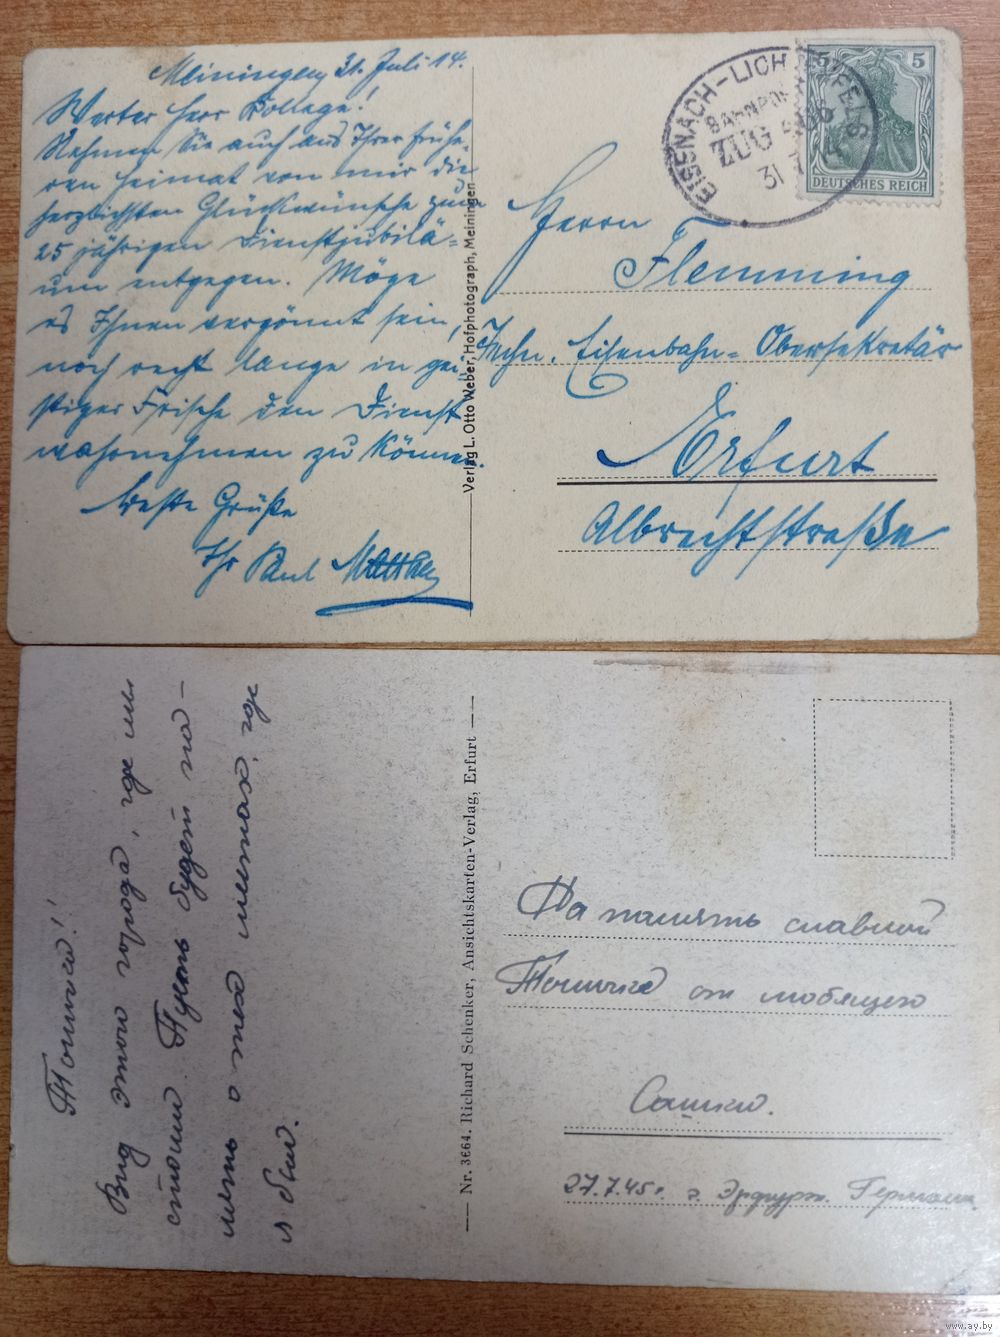 Meiningen, 31. Juli 14.
Werter Herr Kollege!
Nehmen Sie auch aus Ihrer frühe-
ren Heimat von mir die
herzlichsten Glückwünsche zum
25 jährigen Dienstjubilä-
um entgegen. Möge
es Ihnen vergönnt sein,
noch recht lange in gei-
stiger Frische den Dienst
wahrnehmen zu können.
Beste Grüße
Ihr Paul
Verlag L. Otto Weber, Hofphotograph, Meiningen
EISENACH-LICHTENFELS
BAHNPOST
ZUG
31
5 5
DEUTSCHES REICH
Herrn
Flemming
Techn. Eisenbahn-Obersekretär
Erfurt
Albrechtstraße
Тошка!
Вид этого города, где мы
стоим. Пусть будет па-
мять о тех местах, где
я был.
Nr. 3664. Richard Schenker, Ansichtskarten-Verlag, Erfurt
На память славной
от любящего
Сашки.
27.7.45г. г. Эрфурт. Германия
www.ay.by